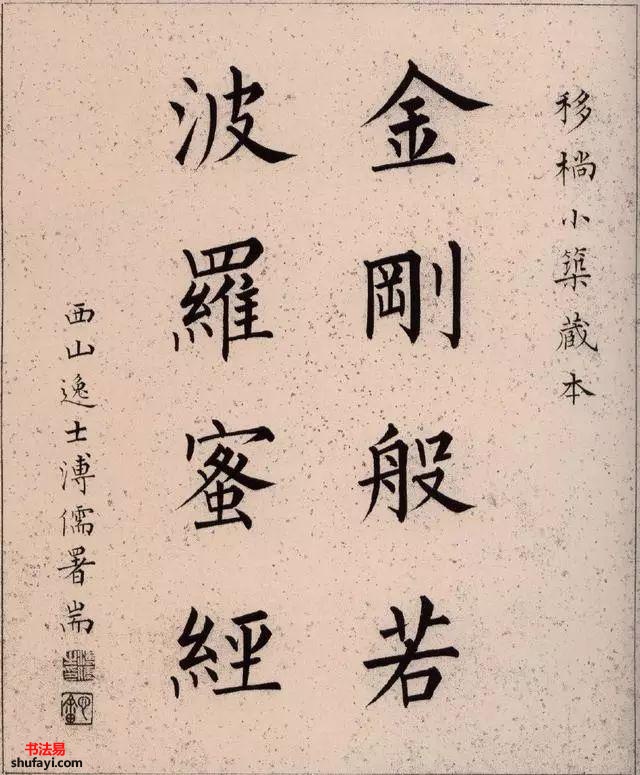 移樠小築蔵本
金剛般若
波羅蜜經
西山逸士溥儒署耑
书法易
shufayi.com